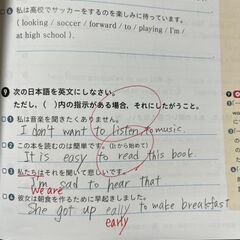 □⑥ 私は高校でサッカーをするのを楽しみに待っています。
( looking / soccer / forward / to / playing / I'm /
at high school ).
❾ 次の日本語を英文にしなさい。
ただし、( )内の指示がある場合、それにしたがうこと。
□① 私は音楽を聞きたくありません。
I don't want to listen to music.
□② この本を読むのは簡単です。(Itから始めて)
It is easy to read this book.
□③ 私たちはそれを聞いて悲しいです。
I'm sad to hear that
We are
□④ 彼女は朝食を作るために早起きしました。
She got up eally to make breakfast
early